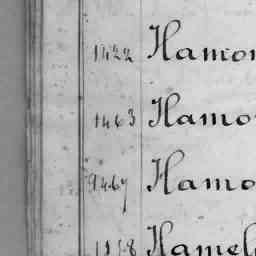 1422 Hamon
1463 Hamo
9467 Hamo
1158 Hamel